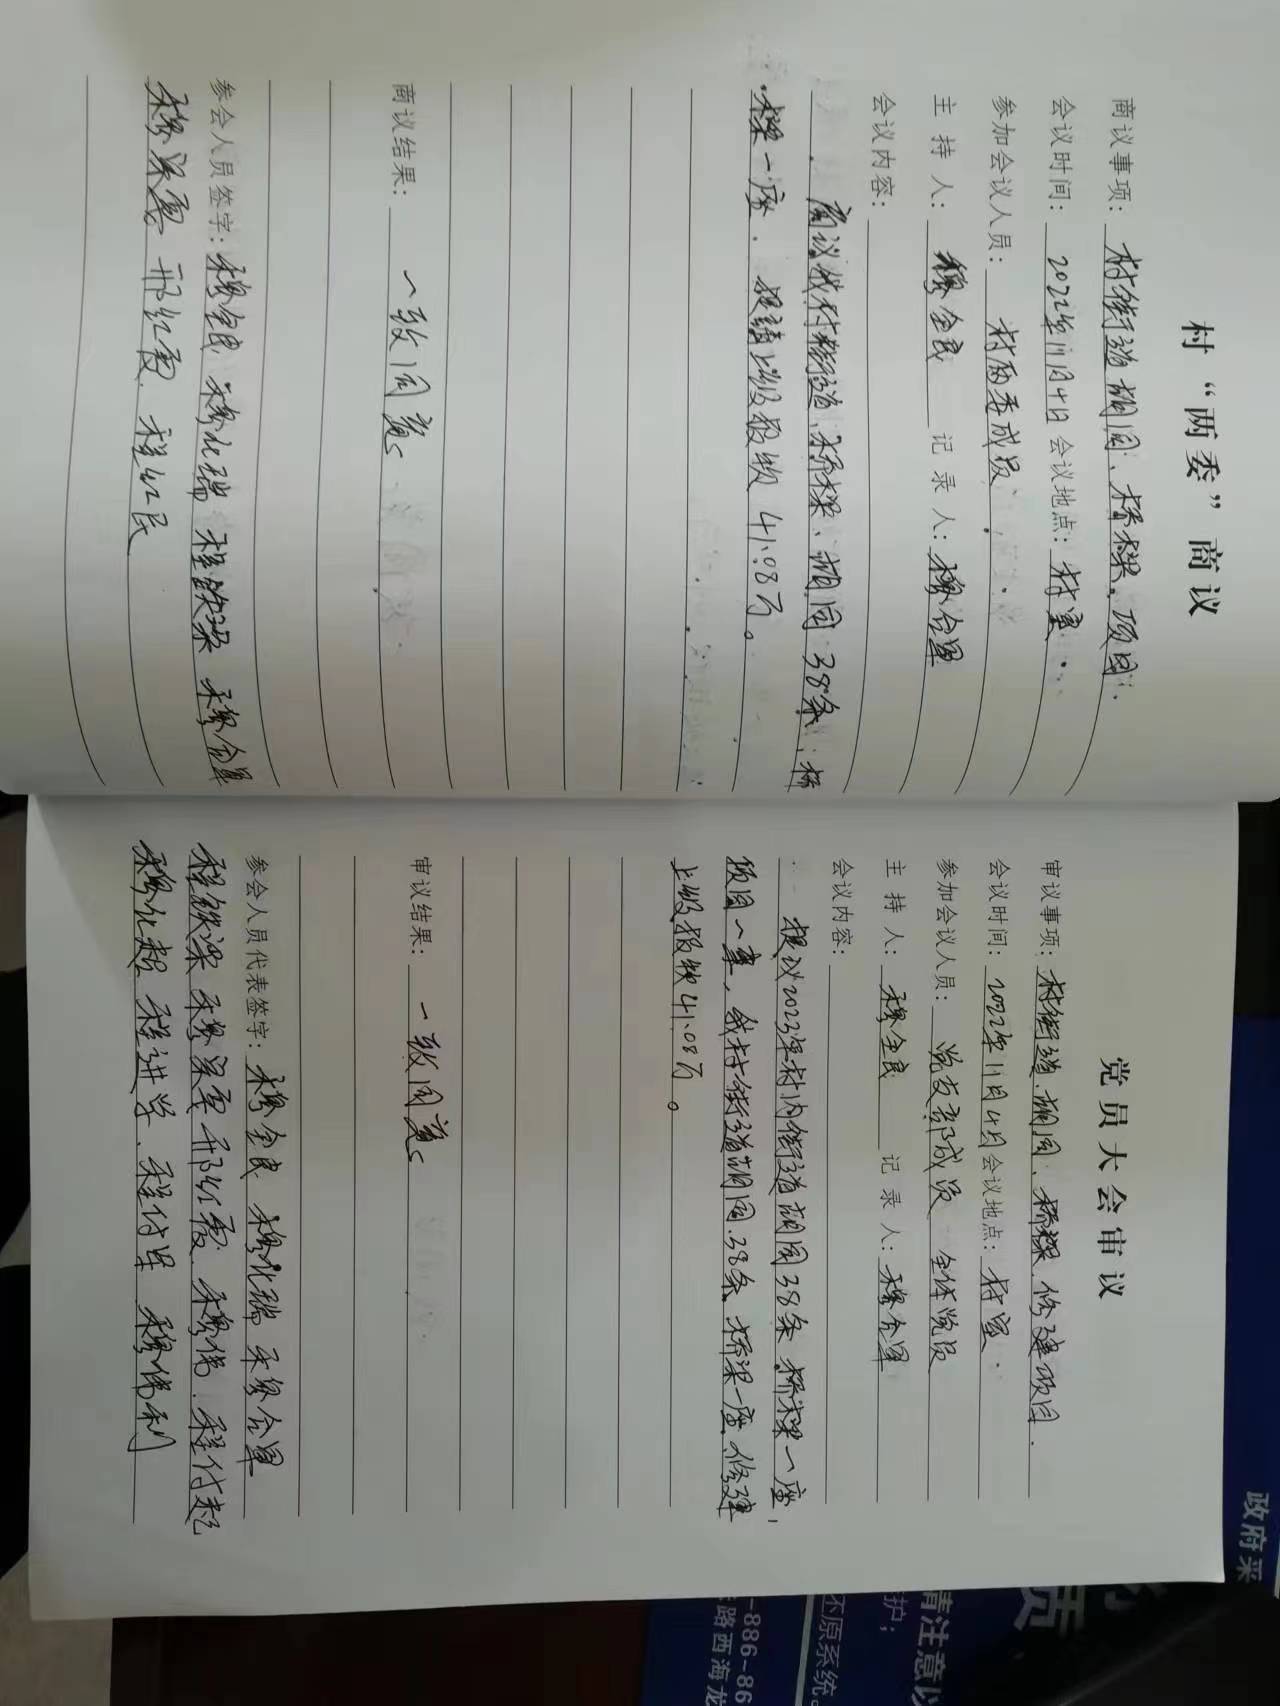 村“两委”商议
商议事项：村街道胡同、桥梁。项目.
会议时间：2022年11月4日 会议地点：村室
参加会议人员：村两委成员.
主 持 人：穆全民 记 录 人：穆合军
会议内容：
商议我村街道、桥梁、胡同38条，桥
梁一座. 提请上级报拨41.08万。
商议结果：一致同意
参会人员签字：穆全民 穆化瑞 程铁梁 穆合军
穆梁 邢红霞. 程红民
党员大会审议
审议事项：村街道.胡同.桥梁.修建项目.
会议时间：2022年11月4日 会议地点：村室
参加会议人员：党支部成员 全体党员
主 持 人：穆全民 记 录 人：穆合军
会议内容：
提议2023年村内街道胡同38条.桥梁一座，
项目一事，我村街道胡同.38条.桥梁一座.修建
上级报拨41.08万。
审议结果：一致同意
参会人员代表签字：穆全民 穆化瑞 穆合军
程铁梁 穆梁 邢红霞. 穆伟. 程付起
穆化超 程讲学. 程付军 穆伟利
政府采
请注意以
护；
还原系统。
-886-86
路西海龙